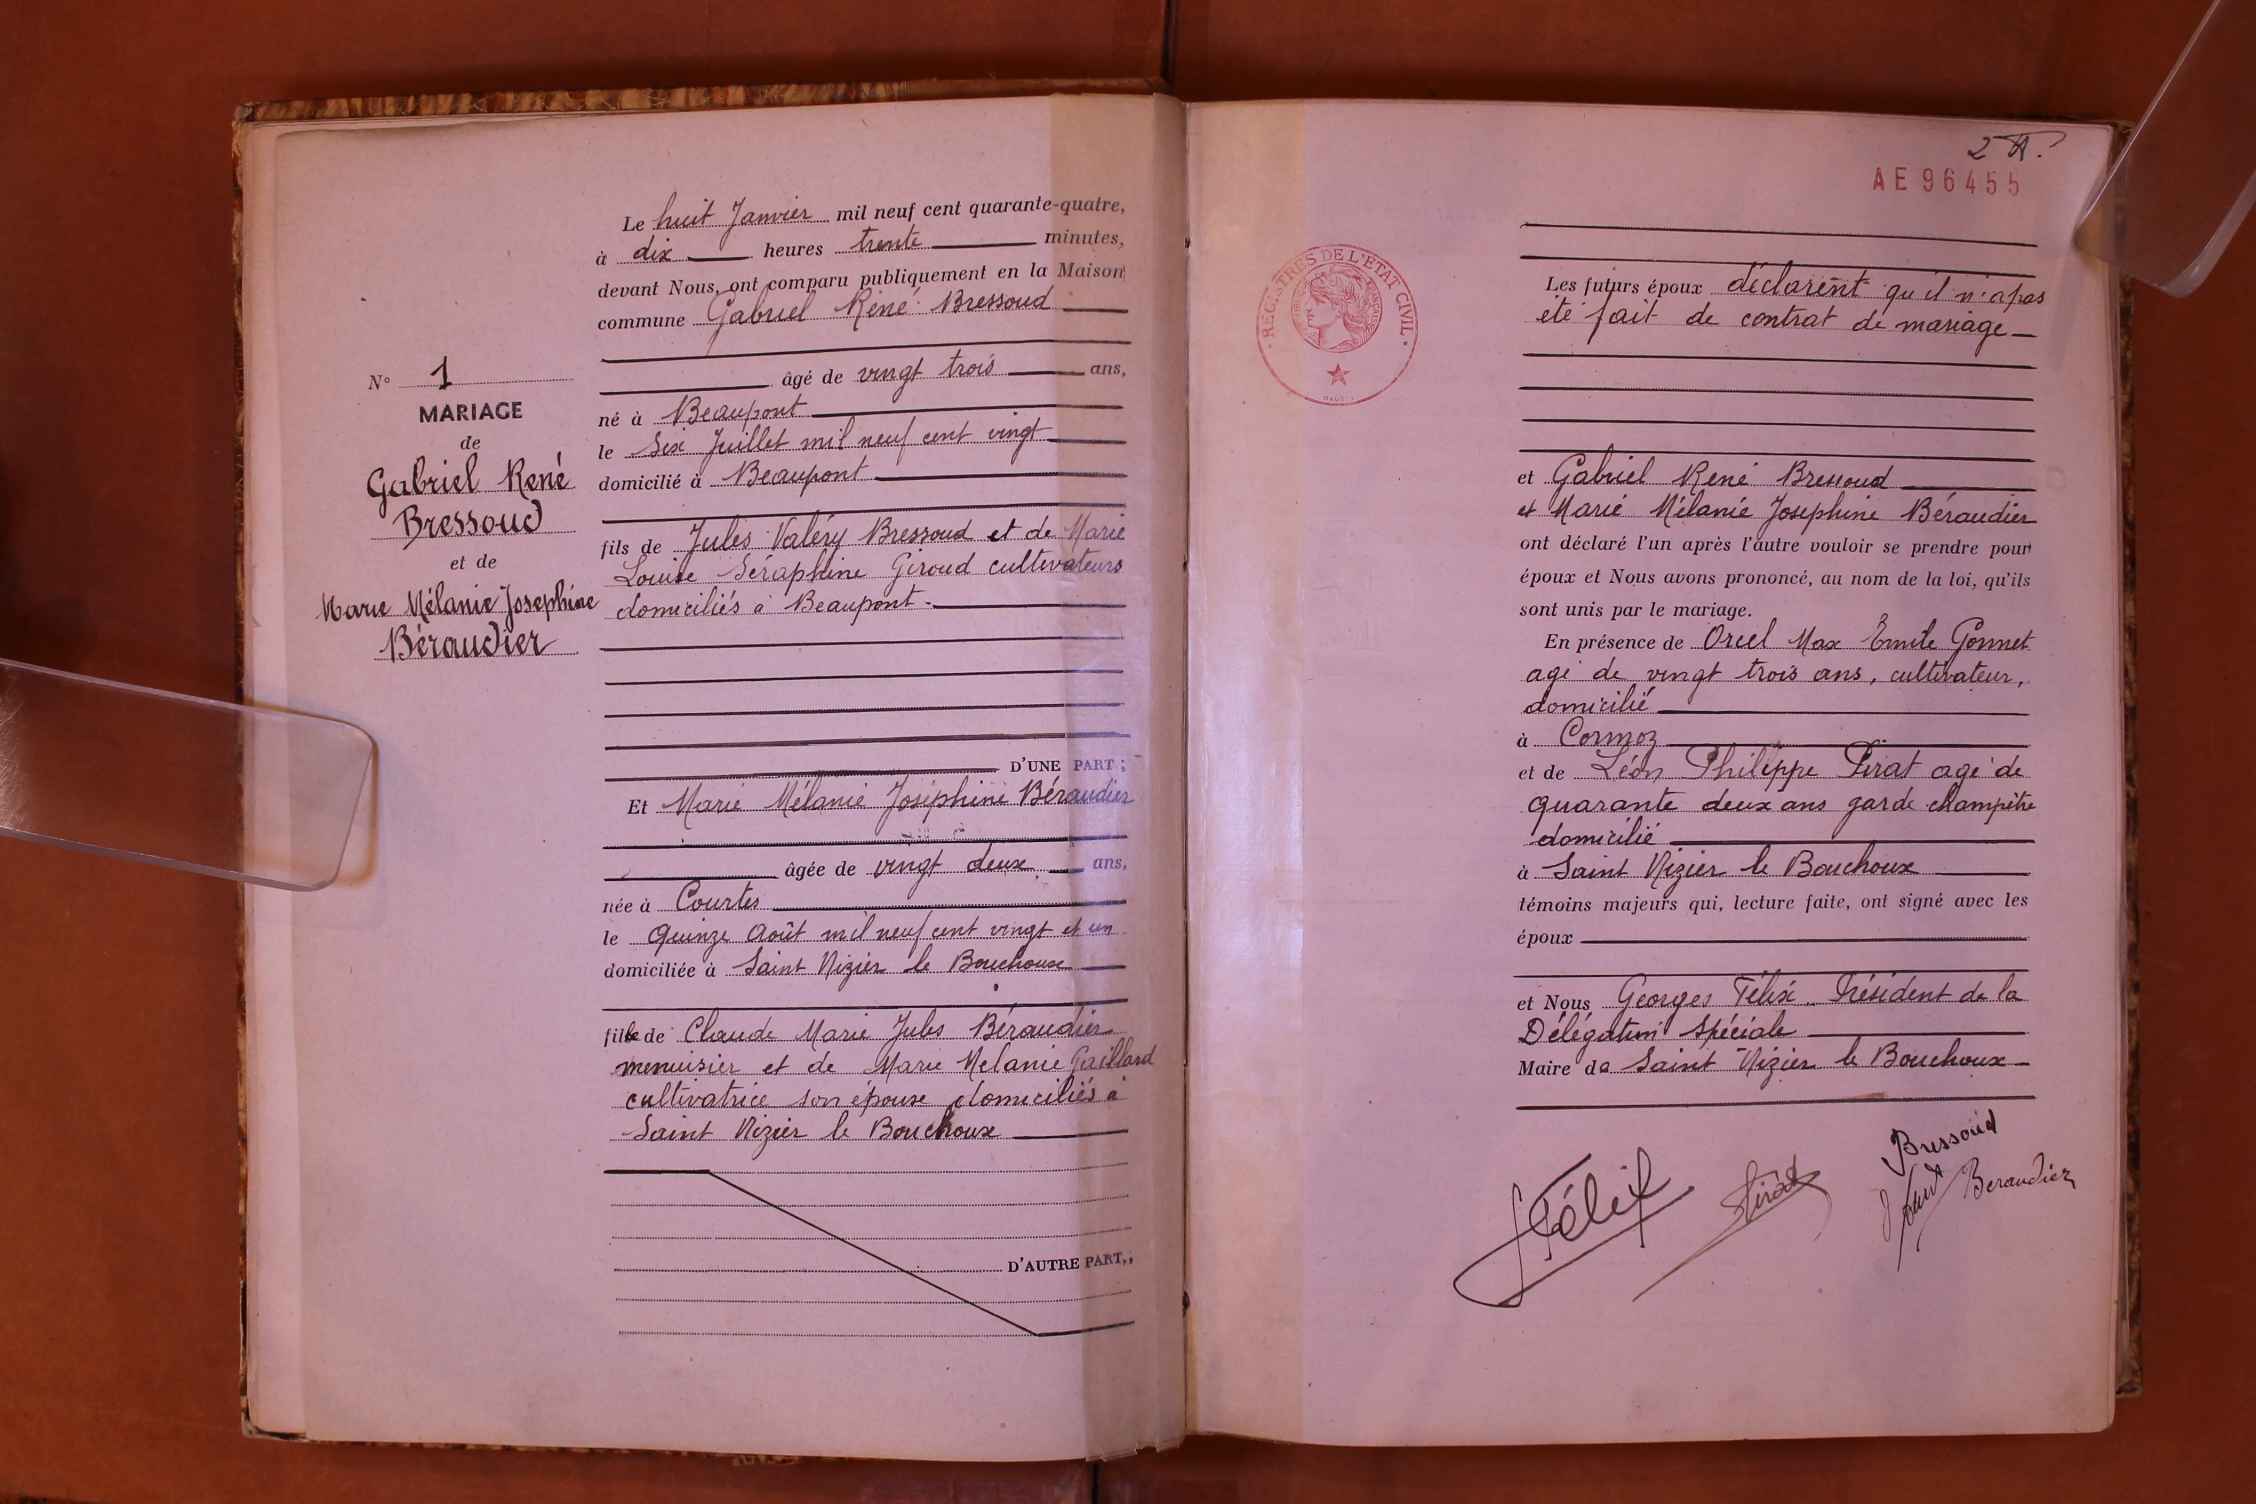 N° 1
MARIAGE
de
Gabriel René
Bressoud
et de
Marie Mélanie Josephine
Béraudier
Le huit Janvier mil neuf cent quarante-quatre,
à dix heures trente minutes,
devant Nous, ont comparu publiquement en la Maison
commune Gabriel René Bressoud
âgé de vingt trois ans,
né à Beaupont
le Six Juillet mil neuf cent vingt
domicilié à Beaupont
fils de Jules Valéry Bressoud et de Marie
Louise Séraphine Giroud cultivateurs
domiciliés à Beaupont.
D'UNE PART ;
Et Marie Mélanie Joséphine Béraudier
âgée de vingt deux ans,
née à Courtes
le quinze Août mil neuf cent vingt et un
domiciliée à Saint Nizier le Bouchoux
fille de Claude Marie Jules Béraudier
menuisier et de Marie Mélanie Gaillard
cultivatrice son épouse domiciliés à
Saint Nizier le Bouchoux
D'AUTRE PART,
2
AE 96455
REGISTRES DE L'ETAT CIVIL
Les futurs époux déclarent qu'il n'a pas
été fait de contrat de mariage
et Gabriel René Bressoud
et Marie Mélanie Josephine Béraudier
ont déclaré l'un après l'autre vouloir se prendre pour
époux et Nous avons prononcé, au nom de la loi, qu'ils
sont unis par le mariage.
En présence de Orcel Max Emile Gonnet
agé de vingt trois ans, cultivateur,
domicilié
à Cormoz
et de Léon Philippe Pirat agé de
quarante deux ans garde champêtre
domicilié
à Saint Nizier le Bouchoux
témoins majeurs qui, lecture faite, ont signé avec les
époux
et Nous Georges Félix Président de la
Délégation Spéciale
Maire de Saint Nizier le Bouchoux
Félix
Pirat
Bressoud
Beraudier